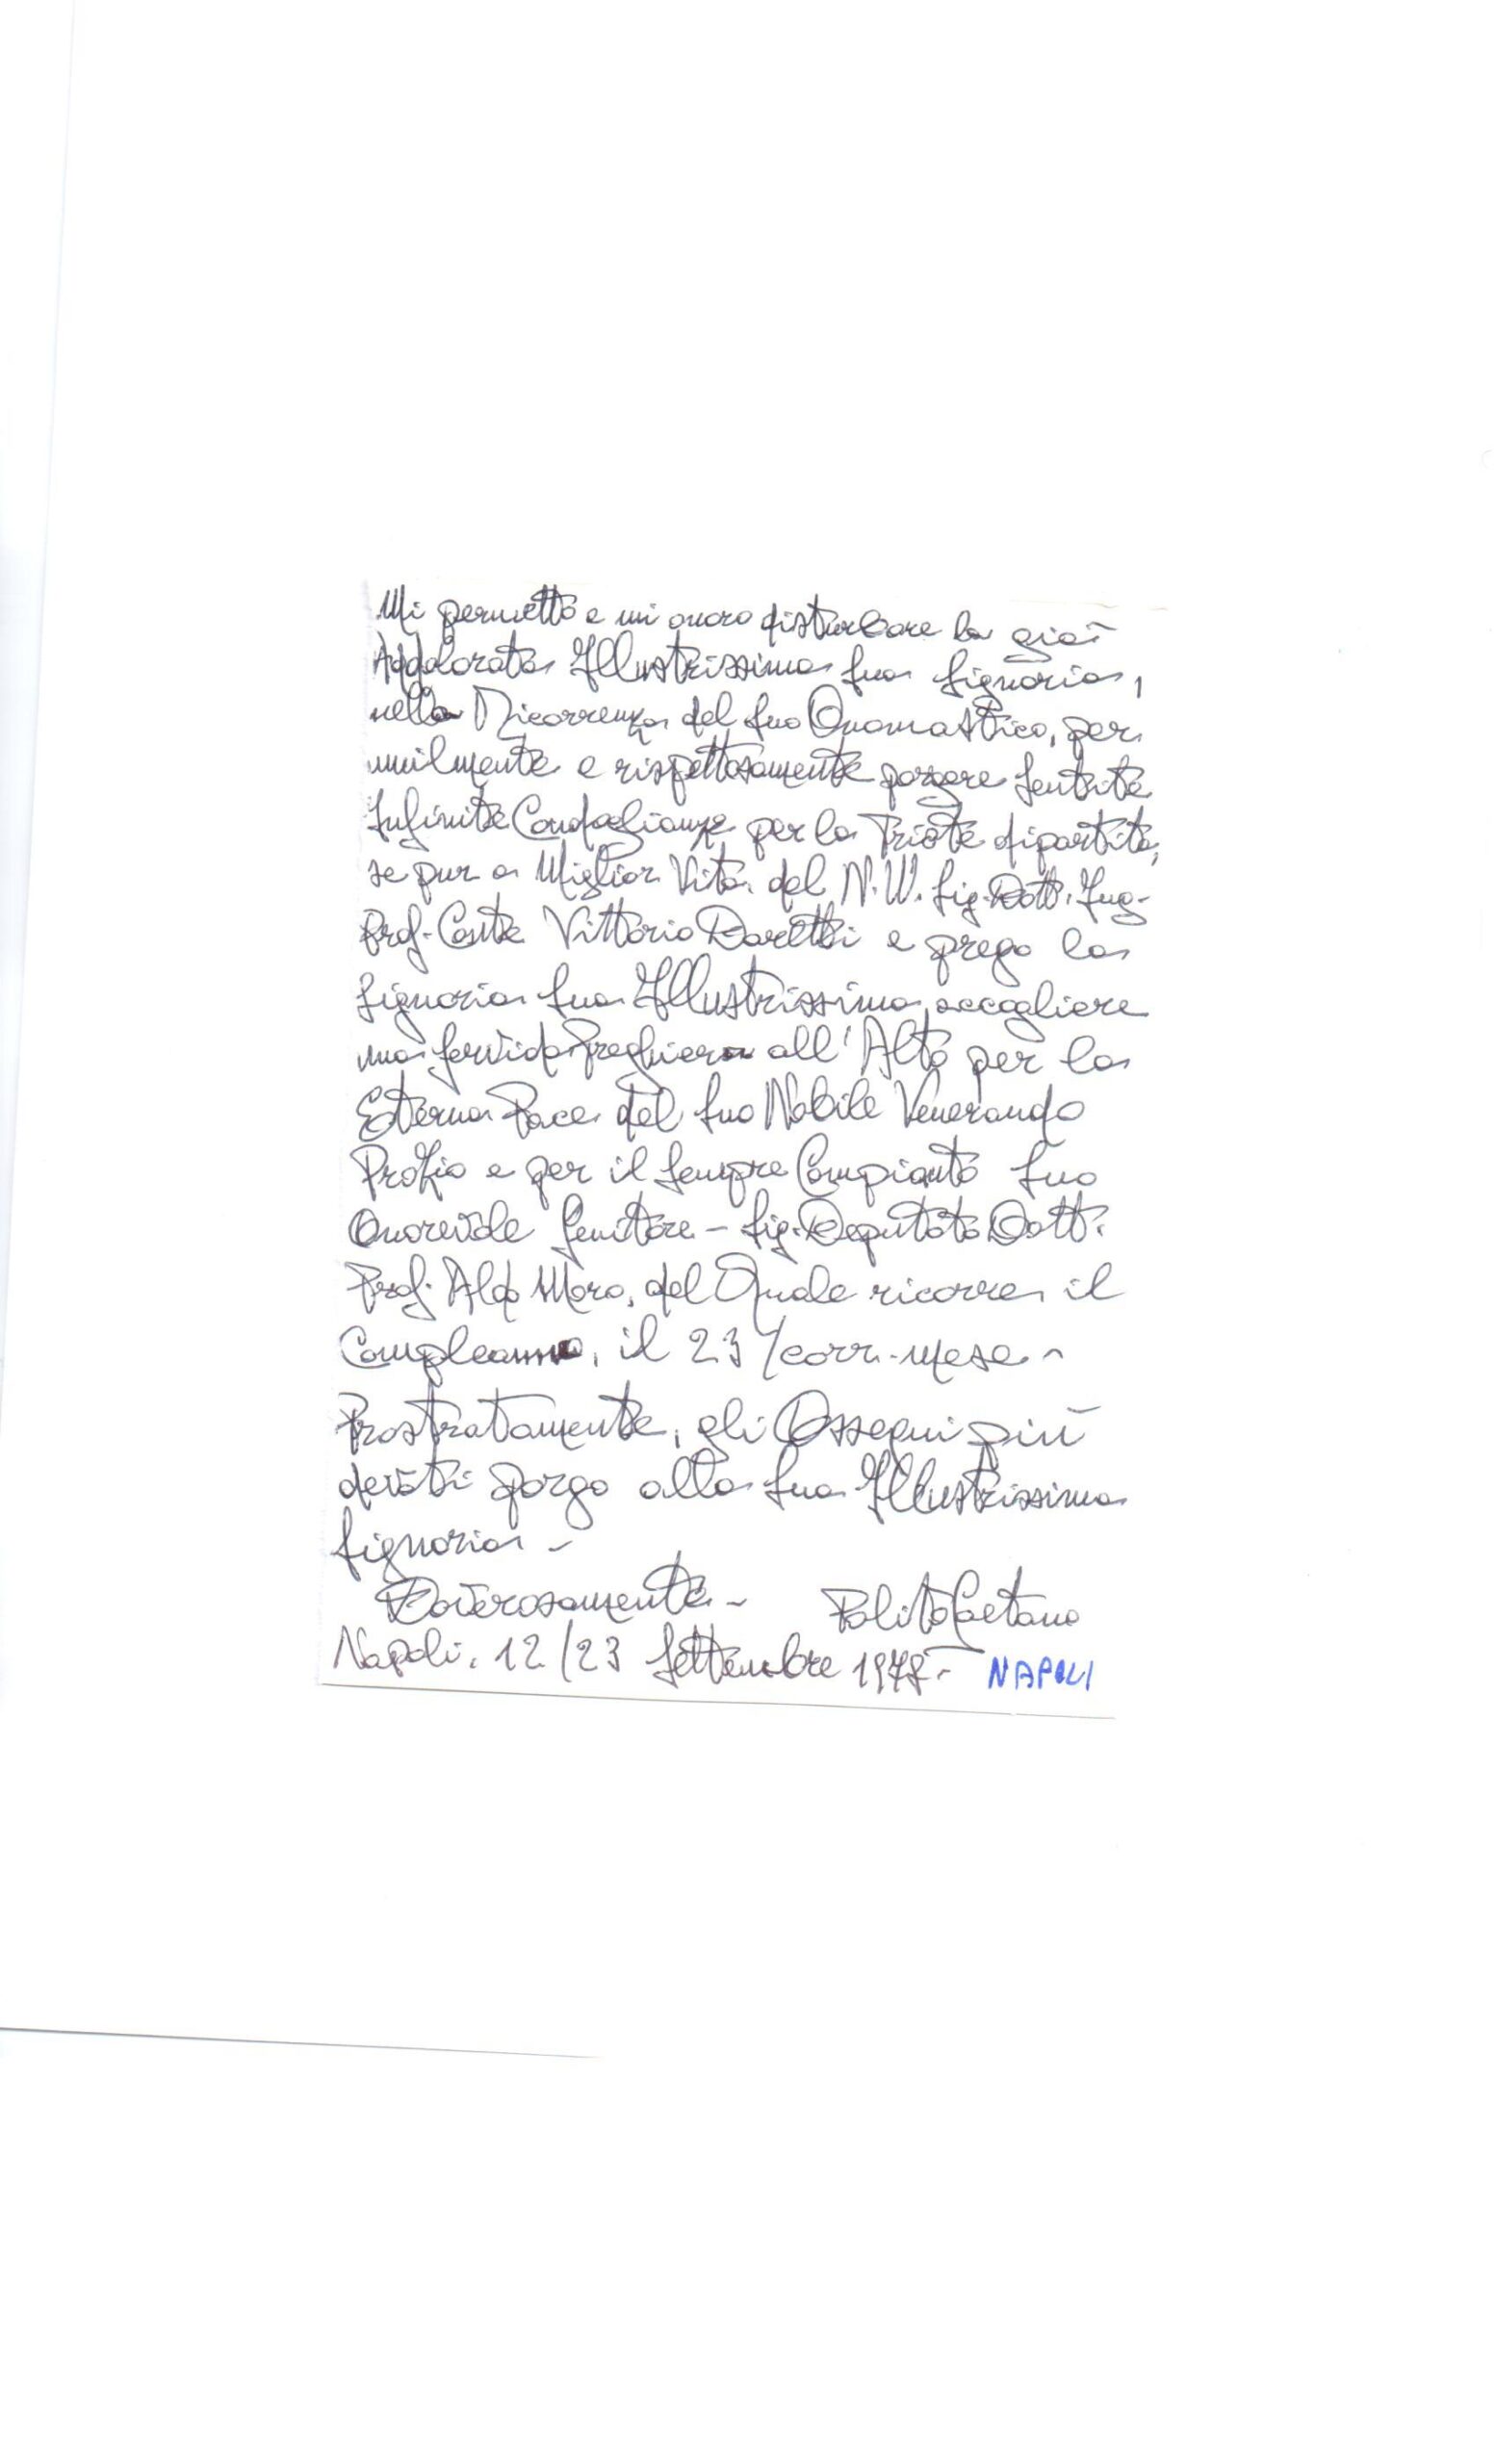 Mi permetto e mi onoro disturbare la già
Addolorata Illustrissima Sua Signoria,
nella Ricorrenza del Suo Onomastico, per
umilmente e rispettosamente porgere Sentite
Infinite Condoglianze per la Triste dipartita,
se pur a Miglior Vita, del N.W. Sig. Dott. Ing.
Prof. Conte Vittorio e prego la
Signoria Sua Illustrissima accogliere
una fervida Preghiera all'Alto per la
Eterna Pace del Suo Nobile Venerando
Prozio e per il Sempre Compianto Suo
Onorevole Genitore - Sig. Deputato Dott.
Prof. Aldo Moro, del Quale ricorre il
Compleanno, il 23/corr. mese -
Prostratamente, gli Ossequi più
devoti porgo alla Sua Illustrissima
Signoria -
Doverosamente - Polito Gaetano
Napoli, 12/23 Settembre 1978 - NAPOLI